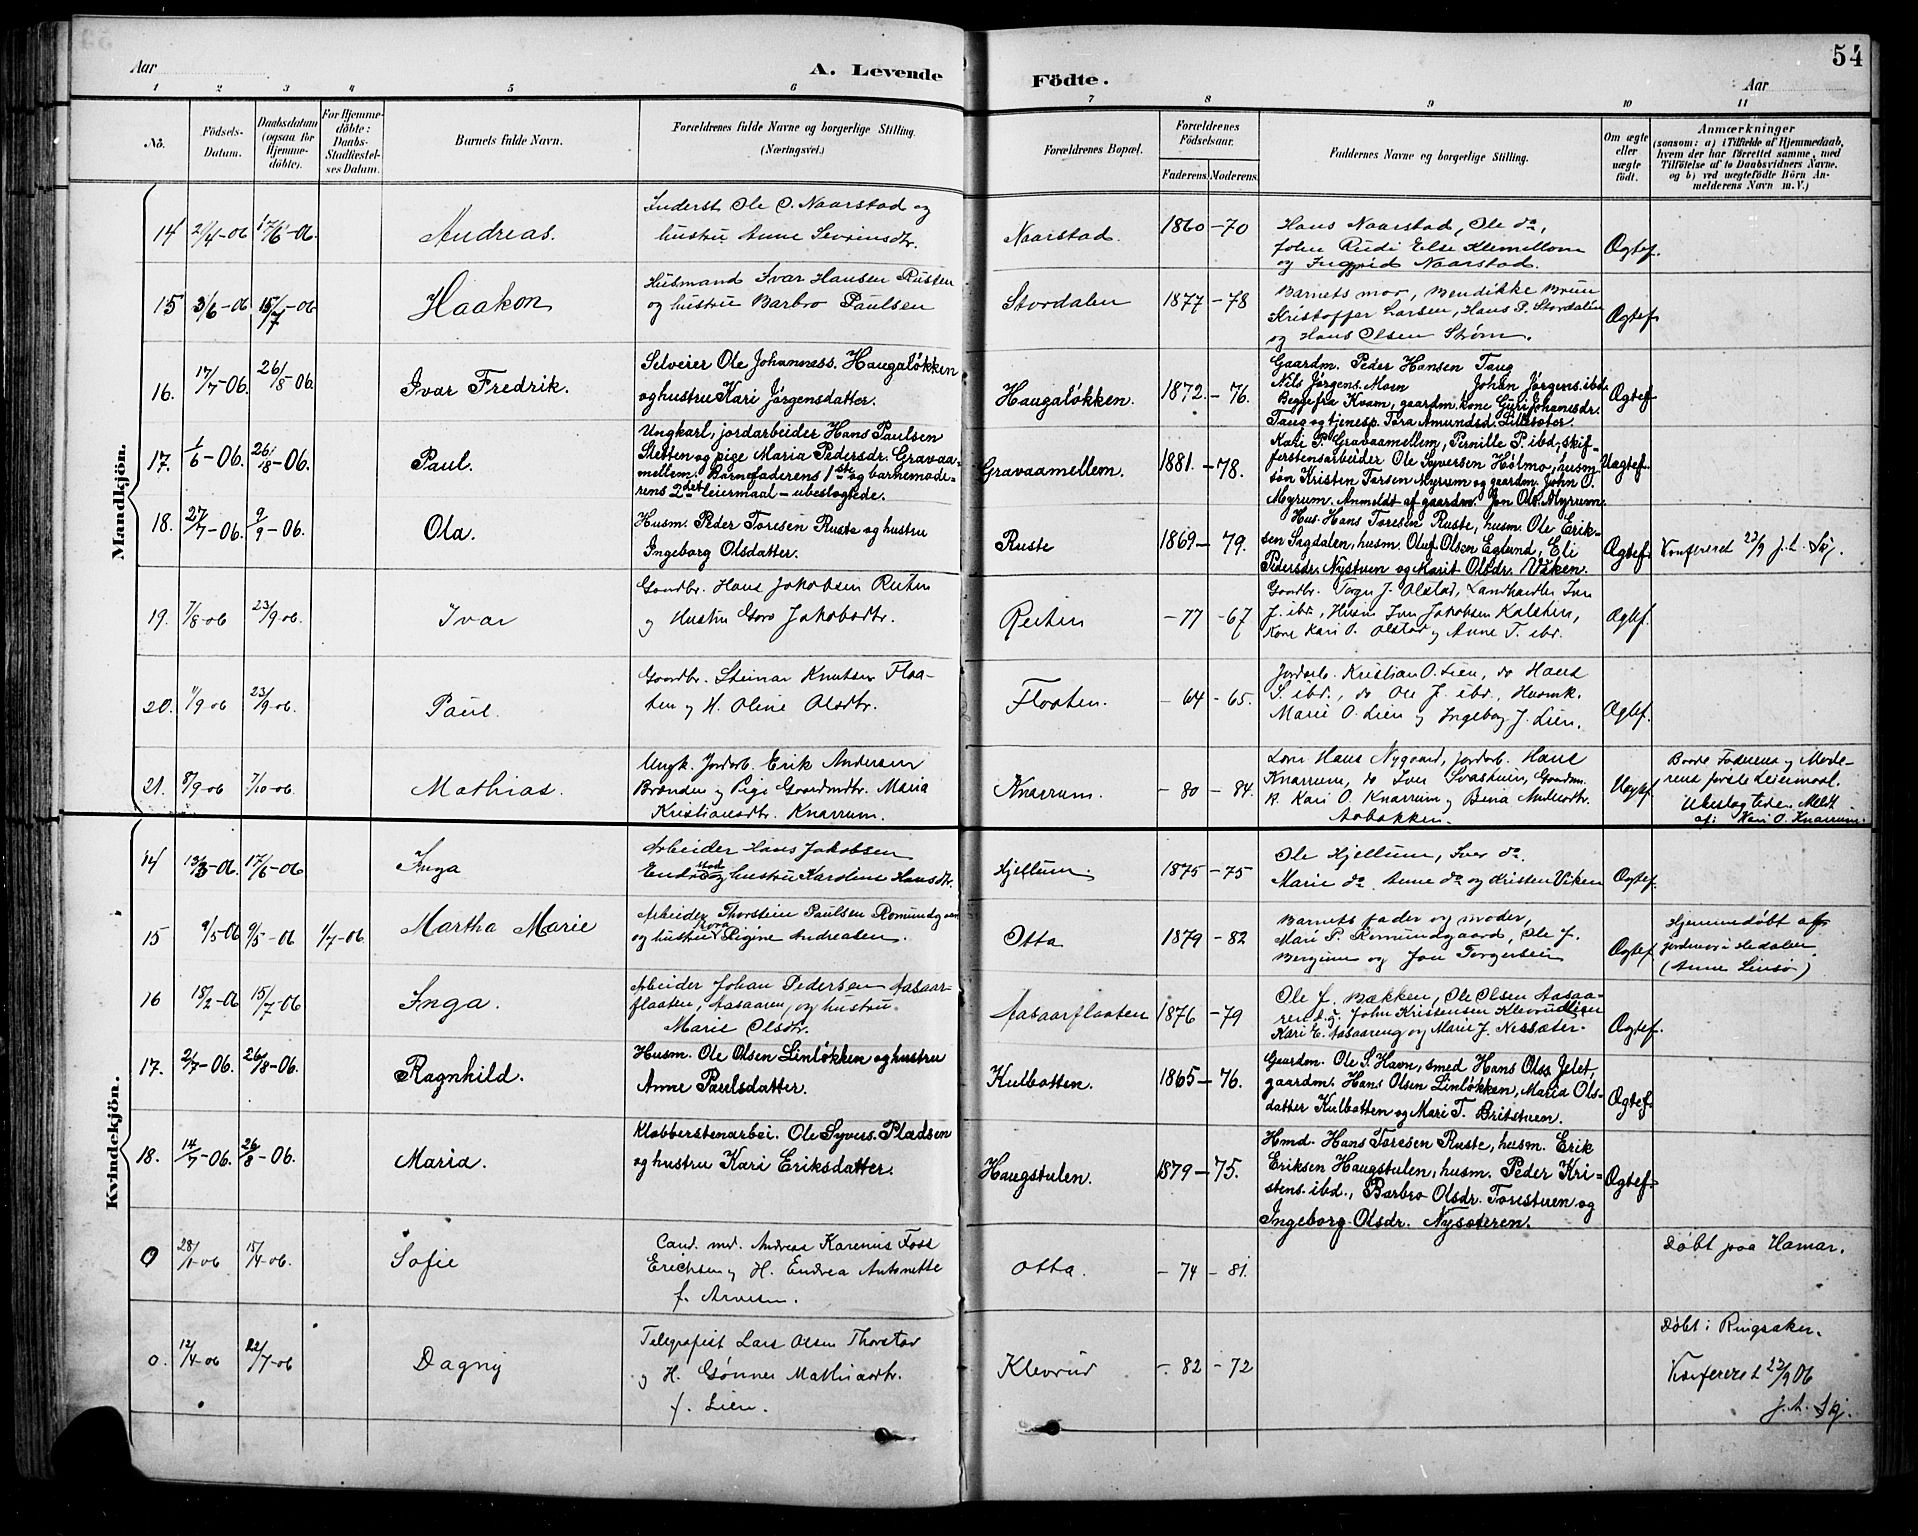 54
Aar
A. Levende Födte.
Aar
1 2 3 4 5 6 7 8 9 10 11
No.
Födsels-Datum.
Daabsdatum (ogsaa for Hjemme-döbte).
For Hjemme-döbte: Daabs-Stadfæstel-ses Datum.
Barnets fulde Navn.
Forældrenes fulde Navne og borgerlige Stilling. (Næringsvei.)
Forældrenes Bopæl.
Forældrenes Födselsaar.
Faderens. Moderens.
Faddernes Navne og borgerlige Stilling.
Om ægte eller uægte födt.
Anmærkninger
(saasom: a) i Tilfælde af Hjemmedaab,
hvem der har förrettet samme, med
Tilföielse af to Daabsvidners Navne,
og b) ved uægtefödte Börn An-
melderens Navn m. V.)
Mandkjön.
14 21/4-06 17/6-06. Andreas.
Inderst Ole O. Naarstad og
hustru Anne Sevrinsdtr.
Naarstad. 1860 -70
Hans Naarstad, Ole do,
John Rudi Else Klemellom
og Ingrid Naarstad.
Ægtef.
15 3/6-06 15/7-06 Haakon
Husmand Ivar Hansen Rusten
og hustru Barbro Paulsen
Stordalen 1877 -78
Barnets mor, Bendikke Brun
Kristoffer Larsen, Hans P. Stordalen
og Hans Olsen Strøm.
Ægtef.
16. 17/7-06. 26/8-06. Ivar Fredrik.
Selveier Ole Johanness. Haugaløkken
og hustru Kari Jørgensdatter.
Haugaløkken. 1872. -76.
Gaardm. Peder Hansen Taug
Nils Jørgens. Moen Johan Jørgens. ibd.
Begge fra Kvam, gaardm. kone Guri Johannsdr.
Taug og tjenesp. Tora Amundsd. Lillesæter.
Ægtef.
17. 1/6-06. 26/8-06. Paul.
Ungkarl, jordarbeider Hans Paulsen
Sletten og pige Maria Pedersdr. Gravaa-
mellem. Barnefaderens 1ste og barnemode-
rens 2det leiermaal - ubeslægtede.
Gravaamellem. 1881. -78.
Kari P. Gravaamellem, Pernille P. ibd, skif-
ferstensarbeider Ole Syversen Holmo, husm.
søn Kristen Torsen Myrum og gaardm. John O.
Myrum. Anmeldt af gaardm. Jon Ols. Myrum.
Uægtef.
18. 27/7-06. 9/9-06. Ola.
Husm. Peder Toresen Ruste og hustru
Ingeborg Olsdatter.
Ruste 1869 -79.
Hus. Hans Toresen Ruste, husm. Ole Erik-
sen Sagdalen, husm. Oluf Olsen Eglund, Eli
Pedersdr. Nystuen og Marit Olsdr. Viken.
Ægtef.
Konfereret 23/9 J. A.
19. 7/8-06 23/9-06. Ivar
Gaardbr. Hans Jakobsen
og Hustru Goro Jakobsdtr.
-77 -67
Gaardbr. J. Olstad, Landhandler Iver
J. ibd., Husm Jakobsen Kolstien,
Kone Kari O. Olstad og Anne T. ibd.
Ægtef.
20. 11/9 06 23/9 06. Paul.
Gaardbr. Steinar Knutsen Flaa-
ten og H. Oline Olsdtr.
Flaaten. -64 -65.
Jordarb. Kristian O. Lien, do Hans
S. ibd., do Ole J. ibd., Husmk.
Marie O. Lien og Ingeborg J. Lien.
Ægtef.
21. 8/9 06 7/10-06. Mathias.
Ungk. Jordarb. Erik Andersen
Brænden og Pige Gaardmdtr. Maria
Kristiansdtr. Knarrum.
Knarrum. -80 -84.
Hans Nygaard, Jordarb. Hans
Knarrum, do Iver Svastuen, Gaardm.
K. Kari O. Knarrum og
Aabakken.
Uægtef.
Baade Faderens og Mode-
rens første Leiermaal.
Ubeslægtede. Meldt
af: Kari O. Knarrum.
Kvindekjön.
14 13/3-06. 17/6-06 Inga
Arbeider Hans Jakobsen
og hustru Karoline Hansdtr.
Hjellum. 1875 -75
Ole Hjellum, Iver do.
Marie do. Anne do og Kristen Viken
Ægtef.
15 9/5-06 9/5-06 1/7-06. Martha Marie
Arbeider Thorstein Paulsen Romundgaard
og hustru Rigine Andreasen.
Otta 1879 -82
Barnets fader og moder,
Mari P. Romundgaard, Ole J.
Bergum og Jon Torgersen
Ægtef.
Hjemmedøbt af
jordemor i Hedalen
(Anne Linsø)
16 18/2-06 15/7-06 Inga.
Arbeider Johan Pedersen Aasaar-
flaaten, Aasaaren, og hustru
Marie Olsdtr.
Aasaarflaaten 1876 -79
Ole J. Bækken, Ole Olsen Aasaa-
ren d.y. John Kristensen
Kari E. Aasaareng og Marie J. Nissæter.
Ægtef.
17. 2/7-06. 26/8-06. Ragnhild.
Husm. Ole Olsen Linløkken og hustru
Anne Paulsdatter.
Kulbotten. 1865 -76.
Gaardm. Ole S. Havn, smed Hans Ols. Jelet,
gaardm. Hans Olsen Linløkken, Maria Ols-
datter Kulbotten og Mari T. Britstuen.
Ægtef.
18. 14/7-06. 26/8-06. Maria.
Klæbberstenarbei. Ole Syvers. Pladsen
og hustru Kari Eriksdatter.
Haugstulen. 1879 -75.
Hmd. Hans Toresen Ruste, husm. Erik
Eriksen Haugstulen, husm. Peder Kri-
stens. ibd., Barbro Olsdr. Torestuen og
Ingeborg Olsdr. Nysæteren.
Ægtef.
0 28/1-06 15/4-06. Sofie
Cand. med. Andreas Karenus Foss
Erichsen og H. Endrea Antonette
f. Arvesen.
Otta. -74 -81.
Døbt paa Hamar.
0. 12/4-06 22/7-06 Dagny
Telegrafist Lars Olsen Thorstad
og H. Gønner Mathiasdtr.
f. Lien.
Klevrud -82 -72
Døbt i Ringsaker.
Konfereret 23/9 06
J. A.